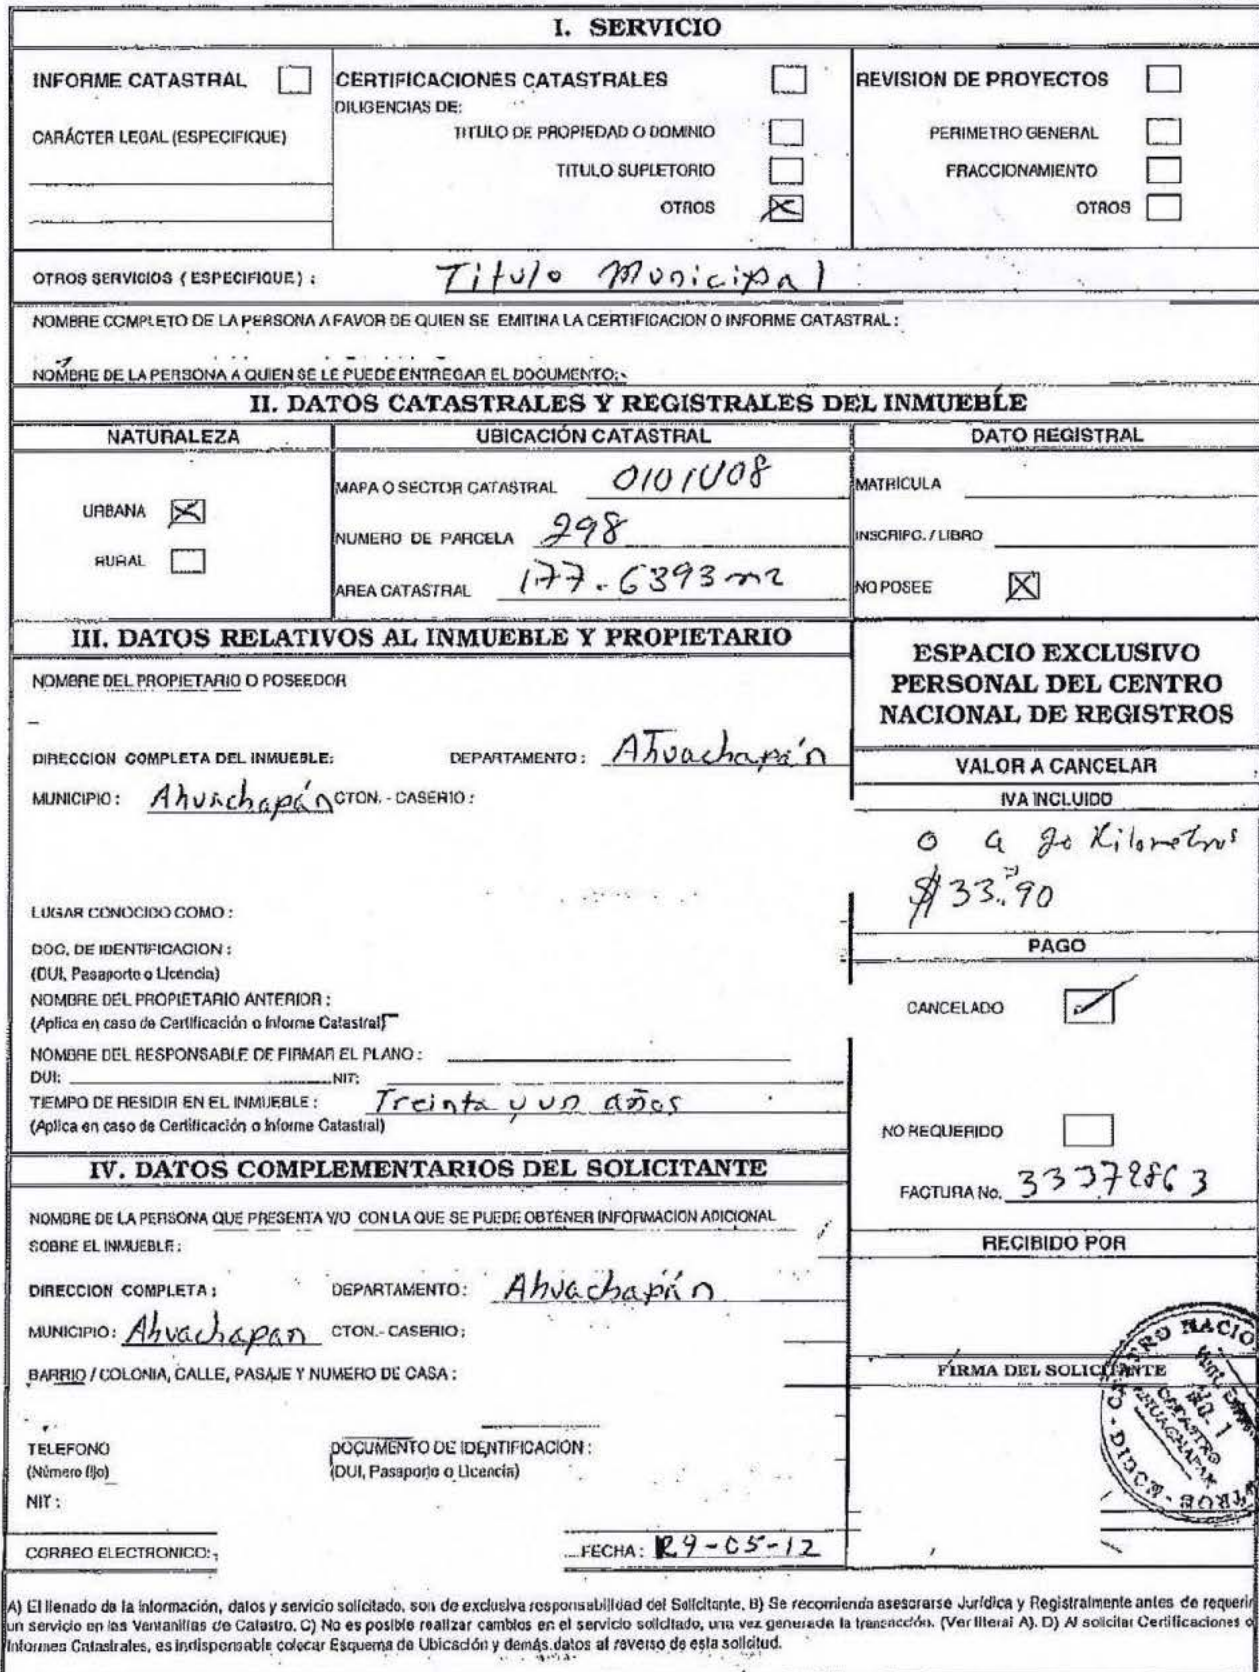 I. SERVICIO
INFORME CATASTRAL
CARÁCTER LEGAL (ESPECIFIQUE)
CERTIFICACIONES CATASTRALES
DILIGENCIAS DE:
TITULO DE PROPIEDAD O DOMINIO
TITULO SUPLETORIO
OTROS
REVISION DE PROYECTOS
PERIMETRO GENERAL
FRACCIONAMIENTO
OTROS
OTROS SERVICIOS ( ESPECIFIQUE ) : Titulo Municipal
NOMBRE COMPLETO DE LA PERSONA A FAVOR DE QUIEN SE EMITIRA LA CERTIFICACION O INFORME CATASTRAL :
NOMBRE DE LA PERSONA A QUIEN SE LE PUEDE ENTREGAR EL DOCUMENTO:
II. DATOS CATASTRALES Y REGISTRALES DEL INMUEBLE
NATURALEZA
URBANA
RURAL
UBICACIÓN CATASTRAL
MAPA O SECTOR CATASTRAL 0101U08
NUMERO DE PARCELA 298
AREA CATASTRAL 177.6393 m2
DATO REGISTRAL
MATRICULA
INSCRIPC. / LIBRO
NO POSEE
III. DATOS RELATIVOS AL INMUEBLE Y PROPIETARIO
NOMBRE DEL PROPIETARIO O POSEEDOR
DIRECCION COMPLETA DEL INMUEBLE: DEPARTAMENTO : Ahuachapán
MUNICIPIO : Ahuachapán CTON. - CASERIO :
LUGAR CONOCIDO COMO :
DOC. DE IDENTIFICACION :
(DUI, Pasaporte o Licencia)
NOMBRE DEL PROPIETARIO ANTERIOR :
(Aplica en caso de Certificación o Informe Catastral)
NOMBRE DEL RESPONSABLE DE FIRMAR EL PLANO :
DUI: NIT:
TIEMPO DE RESIDIR EN EL INMUEBLE : Treinta y un años
(Aplica en caso de Certificación o Informe Catastral)
ESPACIO EXCLUSIVO
PERSONAL DEL CENTRO
NACIONAL DE REGISTROS
VALOR A CANCELAR
IVA INCLUIDO
0 a 20 Kilometros
$33.90
PAGO
CANCELADO
NO REQUERIDO
FACTURA No. 33372863
IV. DATOS COMPLEMENTARIOS DEL SOLICITANTE
NOMBRE DE LA PERSONA QUE PRESENTA Y/O CON LA QUE SE PUEDE OBTENER INFORMACION ADICIONAL
SOBRE EL INMUEBLE :
DIRECCION COMPLETA : DEPARTAMENTO : Ahuachapán
MUNICIPIO: Ahuachapan CTON.- CASERIO :
BARRIO / COLONIA, CALLE, PASAJE Y NUMERO DE CASA :
TELEFONO
(Número fijo)
DOCUMENTO DE IDENTIFICACION :
(DUI, Pasaporte o Licencia)
NIT :
CORREO ELECTRONICO:
FECHA : 29-05-12
RECIBIDO POR
FIRMA DEL SOLICITANTE
No. 1
CATASTRO
AHUACHAPAN
A) El llenado de la información, datos y servicio solicitado, son de exclusiva responsabilidad del Solicitante. B) Se recomienda asesorarse Jurídica y Registralmente antes de requerir
un servicio en las Ventanillas de Catastro. C) No es posible realizar cambios en el servicio solicitado, una vez generada la transacción. (Ver literal A). D) Al solicitar Certificaciones o
Informes Catastrales, es indispensable colocar Esquema de Ubicación y demás datos al reverso de esta solicitud.